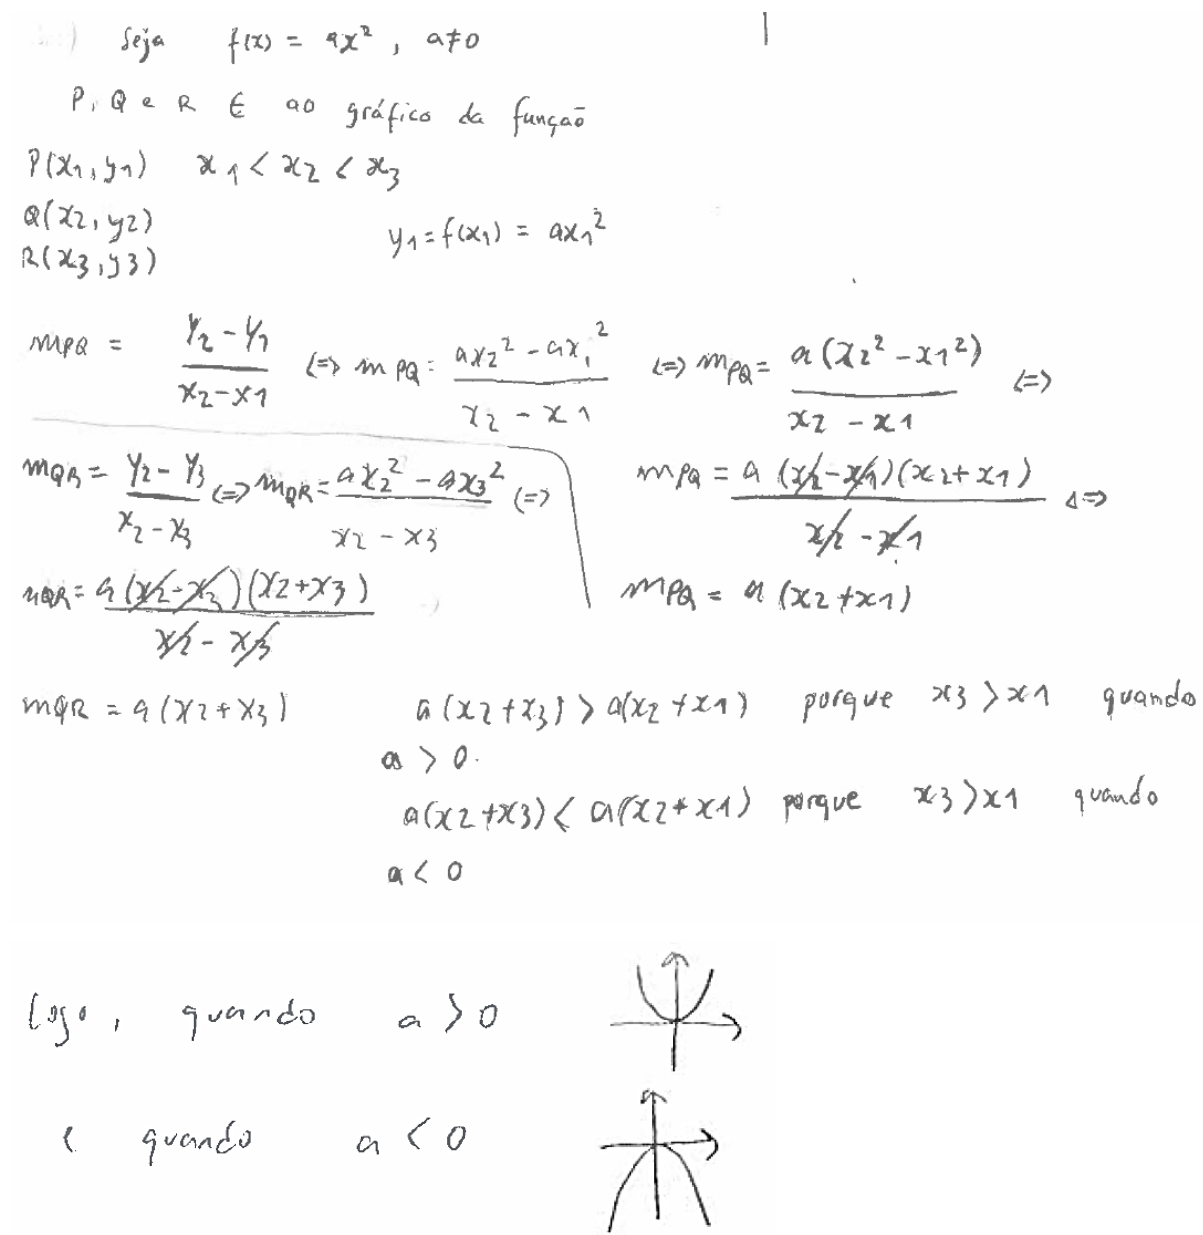 Seja f(x) = ax², a≠0
P, Q e R ∈ ao gráfico da função
P(x1, y1) x1 < x2 < x3
Q(x2, y2)
R(x3, y3)
y1 = f(x1) = ax1²
mPQ = (y2 - y1)/(x2 - x1) <=> mPQ = (ax2² - ax1²)/(x2 - x1) <=> mPQ = a(x2² - x1²)/(x2 - x1) <=>
mPQ = a(x2 - x1)(x2 + x1)/(x2 - x1) <=>
mPQ = a(x2 + x1)
mQR = (y2 - y3)/(x2 - x3) <=> mQR = (ax2² - ax3²)/(x2 - x3) <=>
mQR = a(x2 - x3)(x2 + x3)/(x2 - x3)
mQR = a(x2 + x3)
a(x2 + x3) > a(x2 + x1) porque x3 > x1 quando
a > 0.
a(x2 + x3) < a(x2 + x1) porque x3 > x1 quando
a < 0
Logo, quando a > 0
e quando a < 0